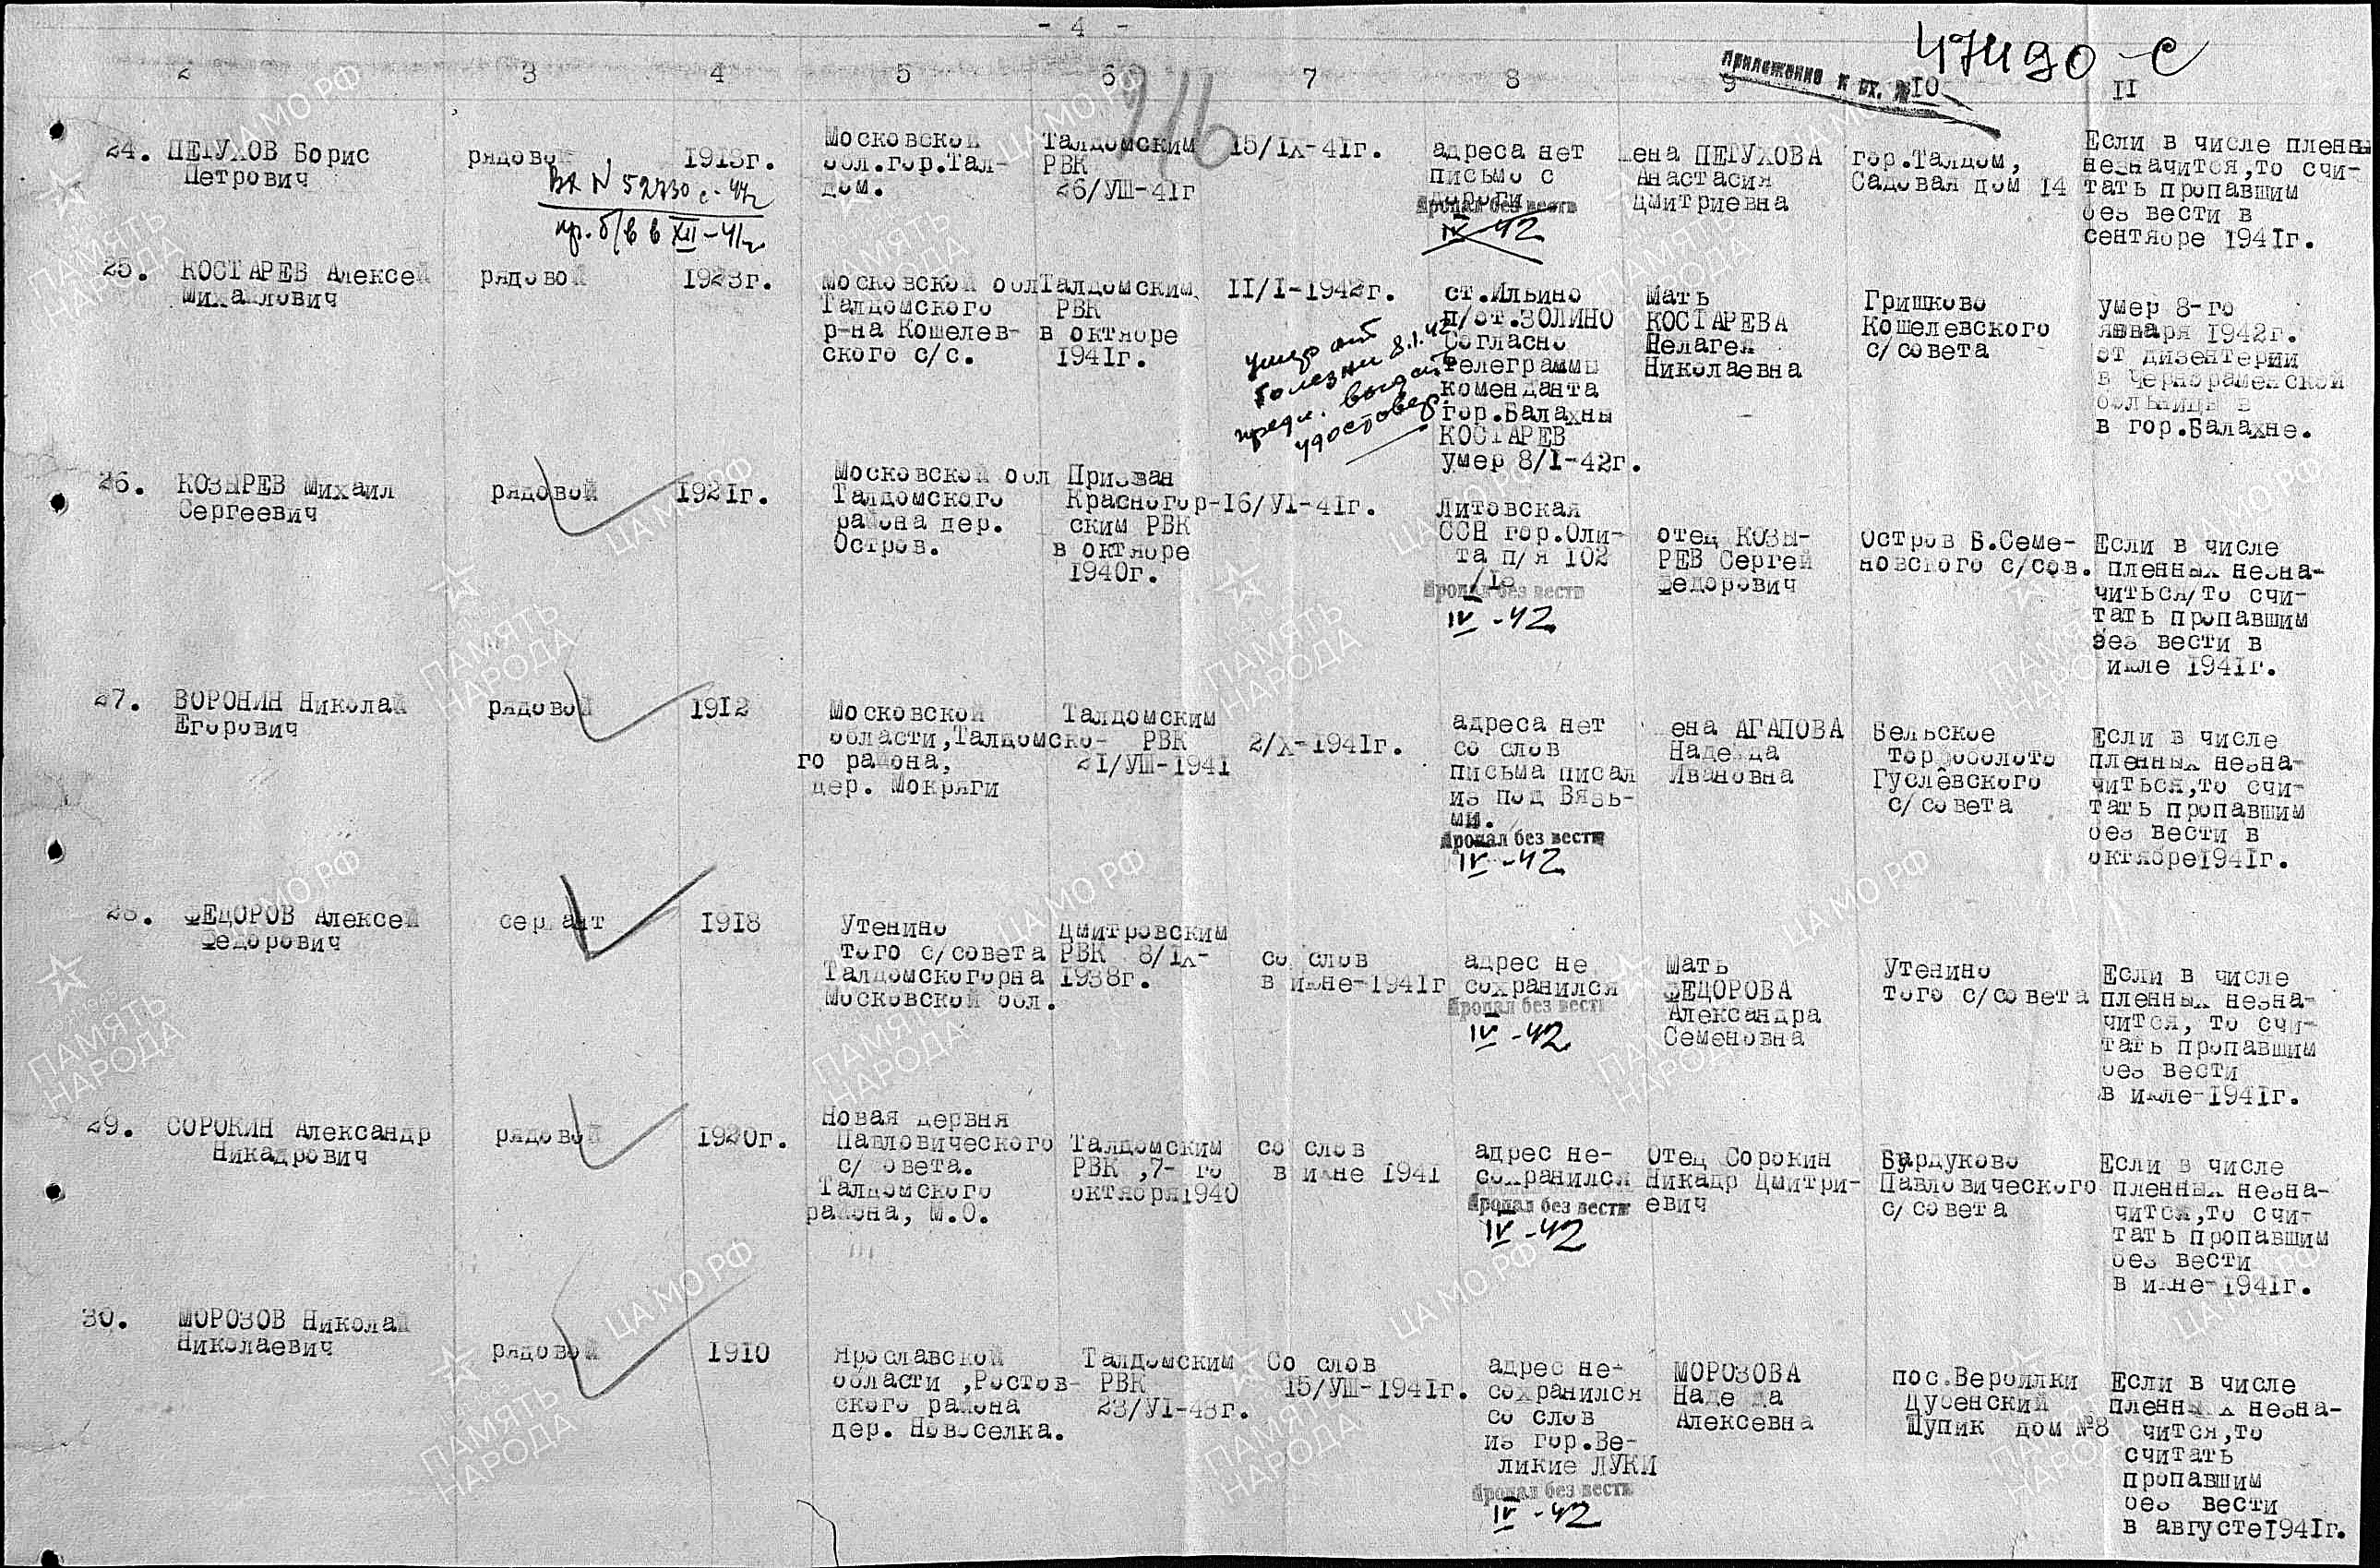 - 4 -
47490-с
Приложение к вх. №
2 3 4 5 6 7 8 9 10 11
116
24. ПЕТУХОВ Борис
Петрович
рядовой
Вх N 52730 с-44г
пр. б/в в XII-41г
1913г.
Московской
обл.гор.Тал-
дом.
Талдомским
РВК
26/УШ-41г
15/IX-41г.
адреса нет
письмо с
дороги
Пропал без вести
IV-42
жена ПЕТУХОВА
Анастасия
Дмитриевна
гор.Талдом,
Садовая дом 14
Если в числе пленных
незначится,то счи-
тать пропавшим
без вести в
сентябре 1941г.
25. КОСТАРЕВ Алексей
Михайлович
рядовой
1923г.
Московской обл
Талдомского
р-на Кошелев-
ского с/с.
Талдомским
РВК
в октябре
1941г.
II/I-1942г.
умер от
болезни 8.1.42
предл. выдать
удостовер.
ст.Ильино
п/от.ЗОЛИНО
Согласно
телеграммы
коменданта
гор.Балахны
КОСТАРЕВ
умер 8/I-42г.
Мать
КОСТАРЕВА
Пелагея
Николаевна
Гришково
Кошелевского
с/совета
умер 8-го
января 1942г.
от дизентерии
в Чернораменской
больнице в
в гор.Балахне.
26. КОЗЫРЕВ Михаил
Сергеевич
рядовой
1921г.
Московской обл
Талдомского
района дер.
Остров.
Призван
Красногор-
ским РВК
в октябре
1940г.
16/VI-41г.
Литовская
ССР гор.Оли-
та п/я 102
/18
Пропал без вести
IV-42
отец КОЗЫ-
РЕВ Сергей
Федорович
Остров Б.Семе-
новского с/сов.
Если в числе
пленных незна-
читься,то счи-
тать пропавшим
без вести в
июле 1941г.
27. ВОРОНИН Николай
Егорович
рядовой
1912
Московской
области,Талдомско-
го района,
дер. Мокряги
Талдомским
РВК
21/УШ-1941
2/X-1941г.
адреса нет
со слов
письма писал
из под Вязь-
мы.
Пропал без вести
IV-42
жена АГАПОВА
Надежда
Ивановна
Бельское
торфоболото
Гуслевского
с/совета
Если в числе
пленных незна-
читься,то счи-
тать пропавшим
без вести в
октябре1941г.
28. ФЕДОРОВ Алексей
Федорович
сержант
1918
Утенино
того с/совета
Талдомскогорна
Московской обл.
Дмитровским
РВК 8/IX-
1938г.
со слов
в июне-1941г
адрес не
сохранился
Пропал без вести
IV-42
Мать
ФЕДОРОВА
Александра
Семеновна
Утенино
того с/совета
Если в числе
пленных незна-
чится, то счи-
тать пропавшим
без вести
в июле-1941г.
29. СОРОКИН Александр
Никадрович
рядовой
1920г.
Новая дервня
Павловического
с/совета.
Талдомского
района, М.О.
Талдомским
РВК ,7- го
октября1940
со слов
в июне 1941
адрес не-
сохранился
Пропал без вести
IV-42
Отец Сорокин
Никадр Дмитри-
евич
Бурдуково
Павловического
с/совета
Если в числе
пленных незна-
чится,то счи-
тать пропавшим
без вести
в июне-1941г.
30. МОРОЗОВ Николай
Николаевич
рядовой
1910
Ярославской
области ,Ростов-
ского района
дер. Новоселка.
Талдомским
РВК
23/VI-43г.
Со слов
15/УШ-1941г.
адрес не-
сохранился
со слов
из гор.Ве-
ликие ЛУКИ
Пропал без вести
IV-42
МОРОЗОВА
Надежда
Алексевна
пос.Вербилки
Дубенский
Шупик дом №8
Если в числе
пленных незна-
чится,то
считать
пропавшим
без вести
в августе1941г.
ЦАМО РФ
ПАМЯТЬ
НАРОДА